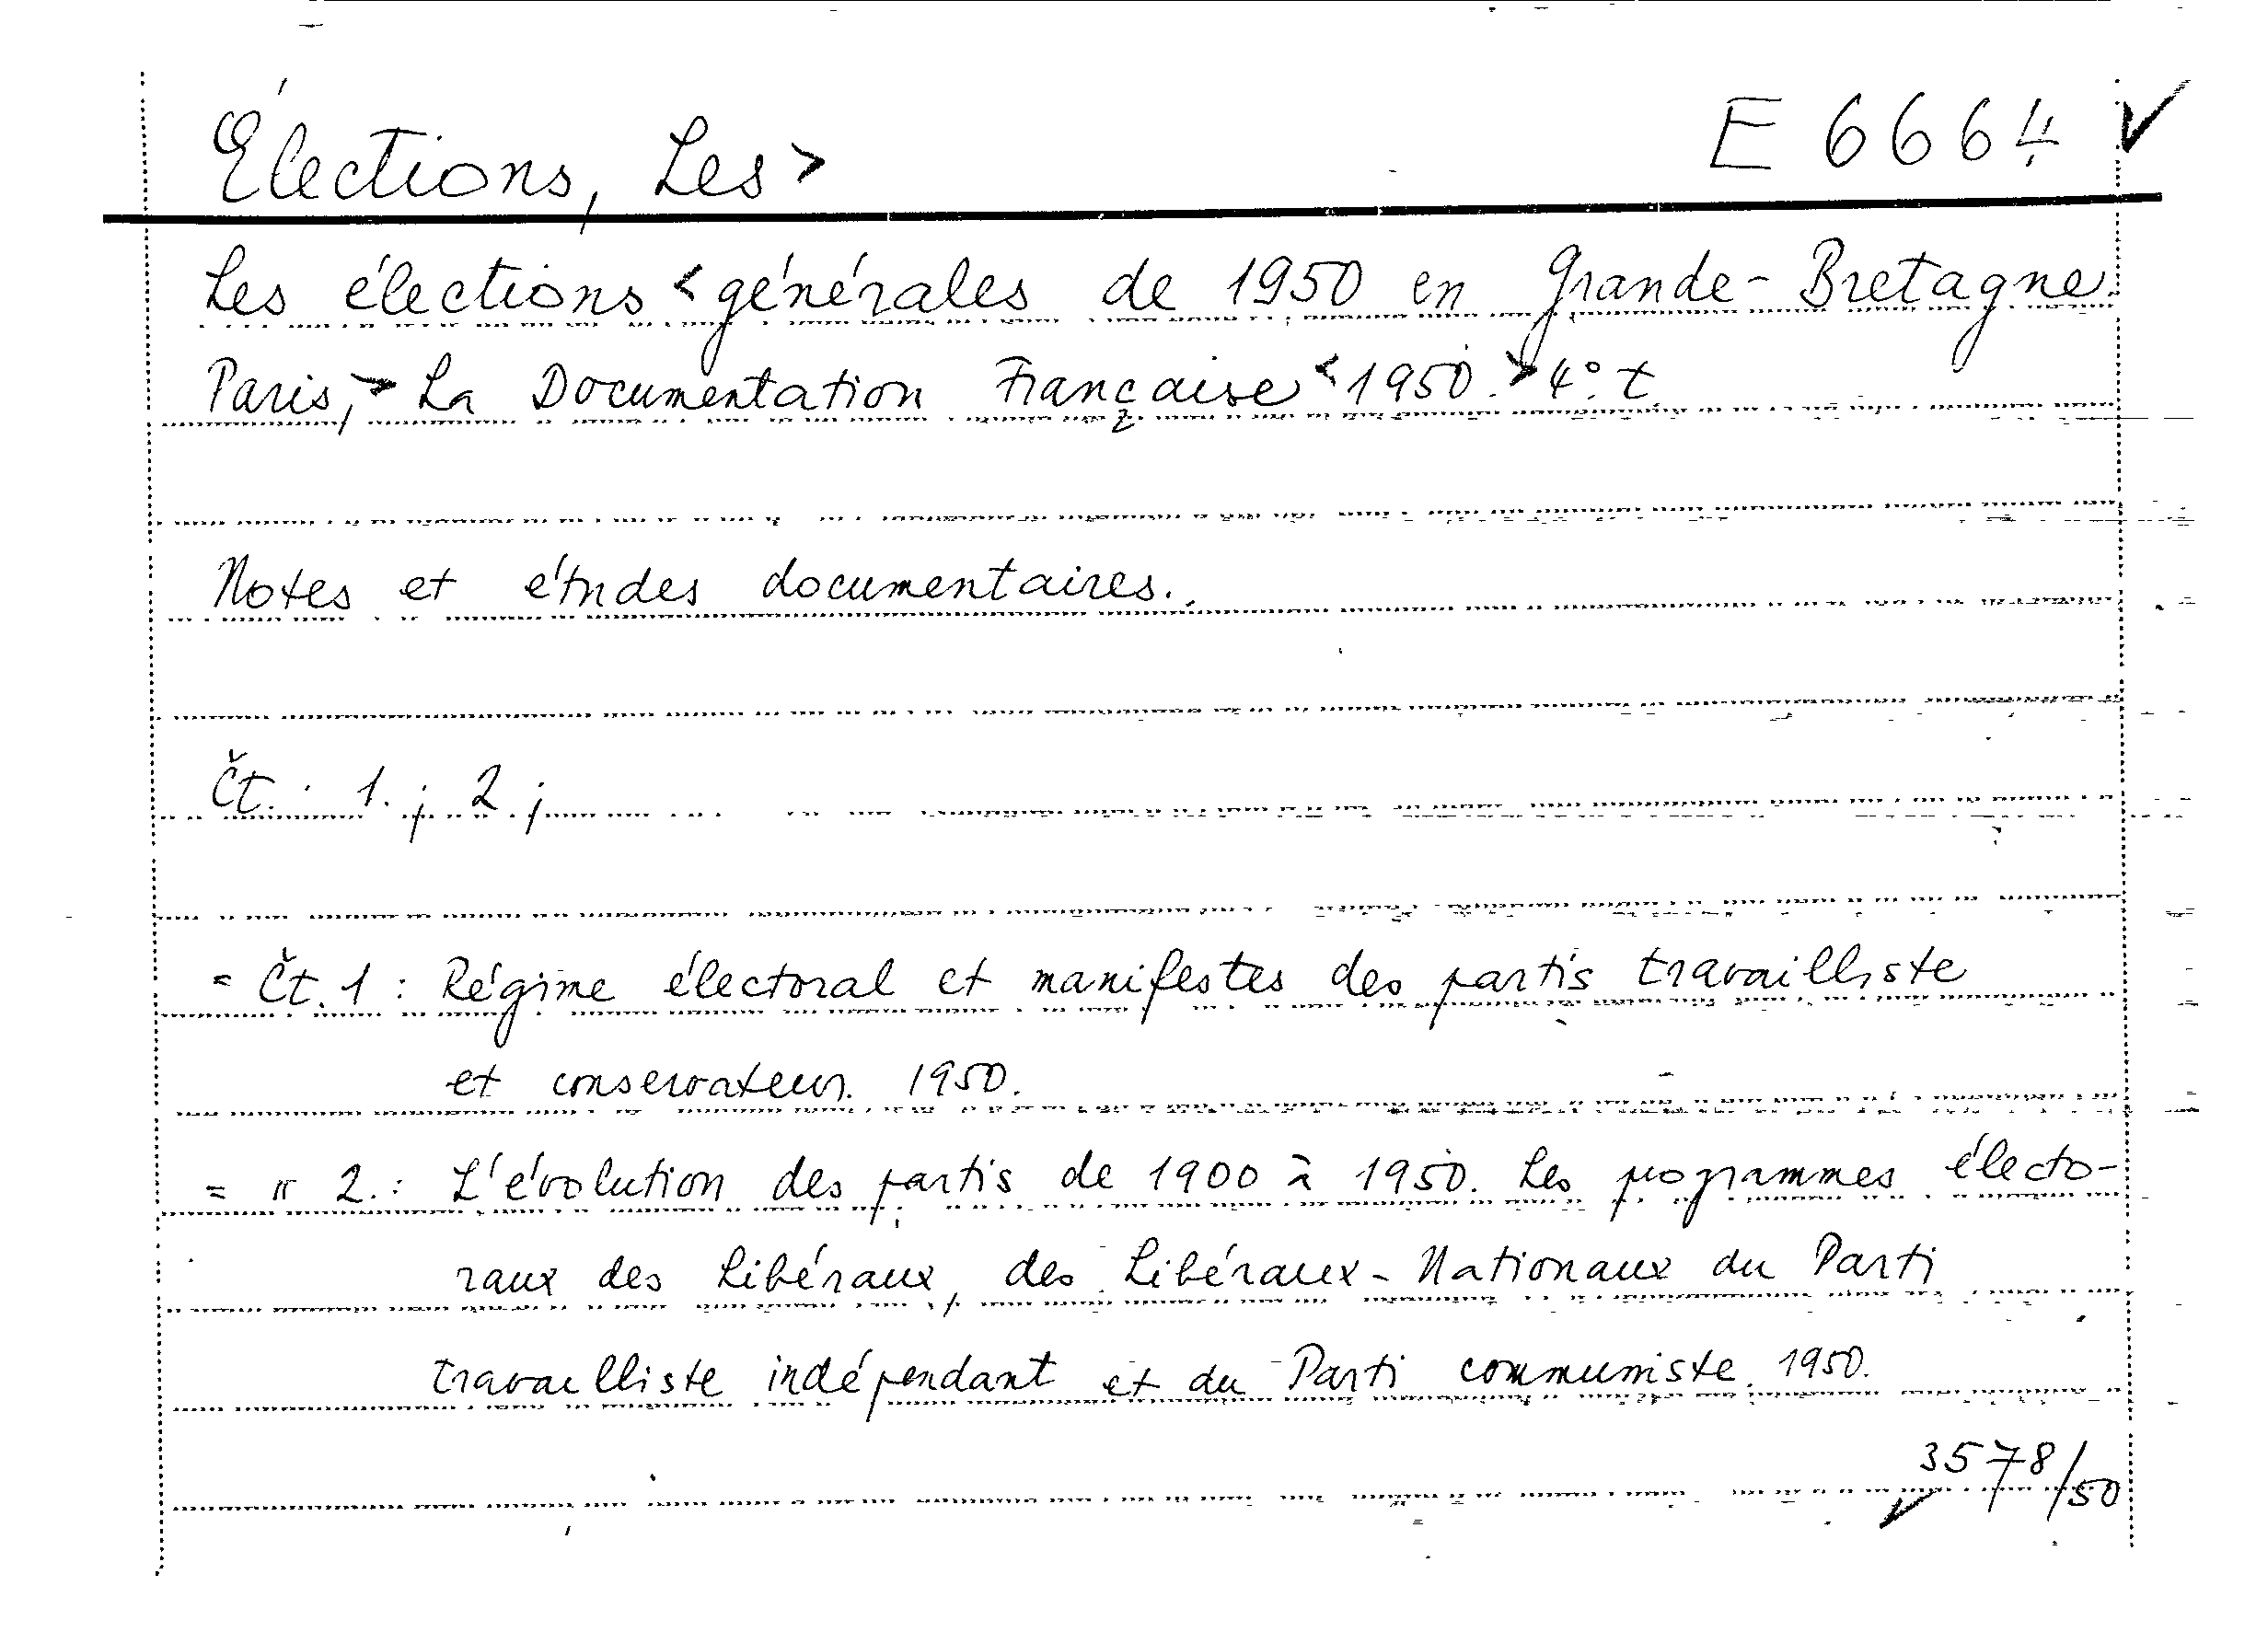 Élections, Les > E 6664 ✓
Les élections < générales de 1950 en Grande-Bretagne.
Paris, > La Documentation Française < 1950. > 4°. t.
Notes et études documentaires.
Čt.: 1.; 2.;
= Čt. 1: Régime électoral et manifestes des partis travailliste
et conservateur. 1950.
= " 2.: L'évolution des partis de 1900 à 1950. Les programmes électo-
raux des Libéraux, des Libéraux-Nationaux du Parti
travailliste indépendant et du Parti communiste. 1950.
3578/50